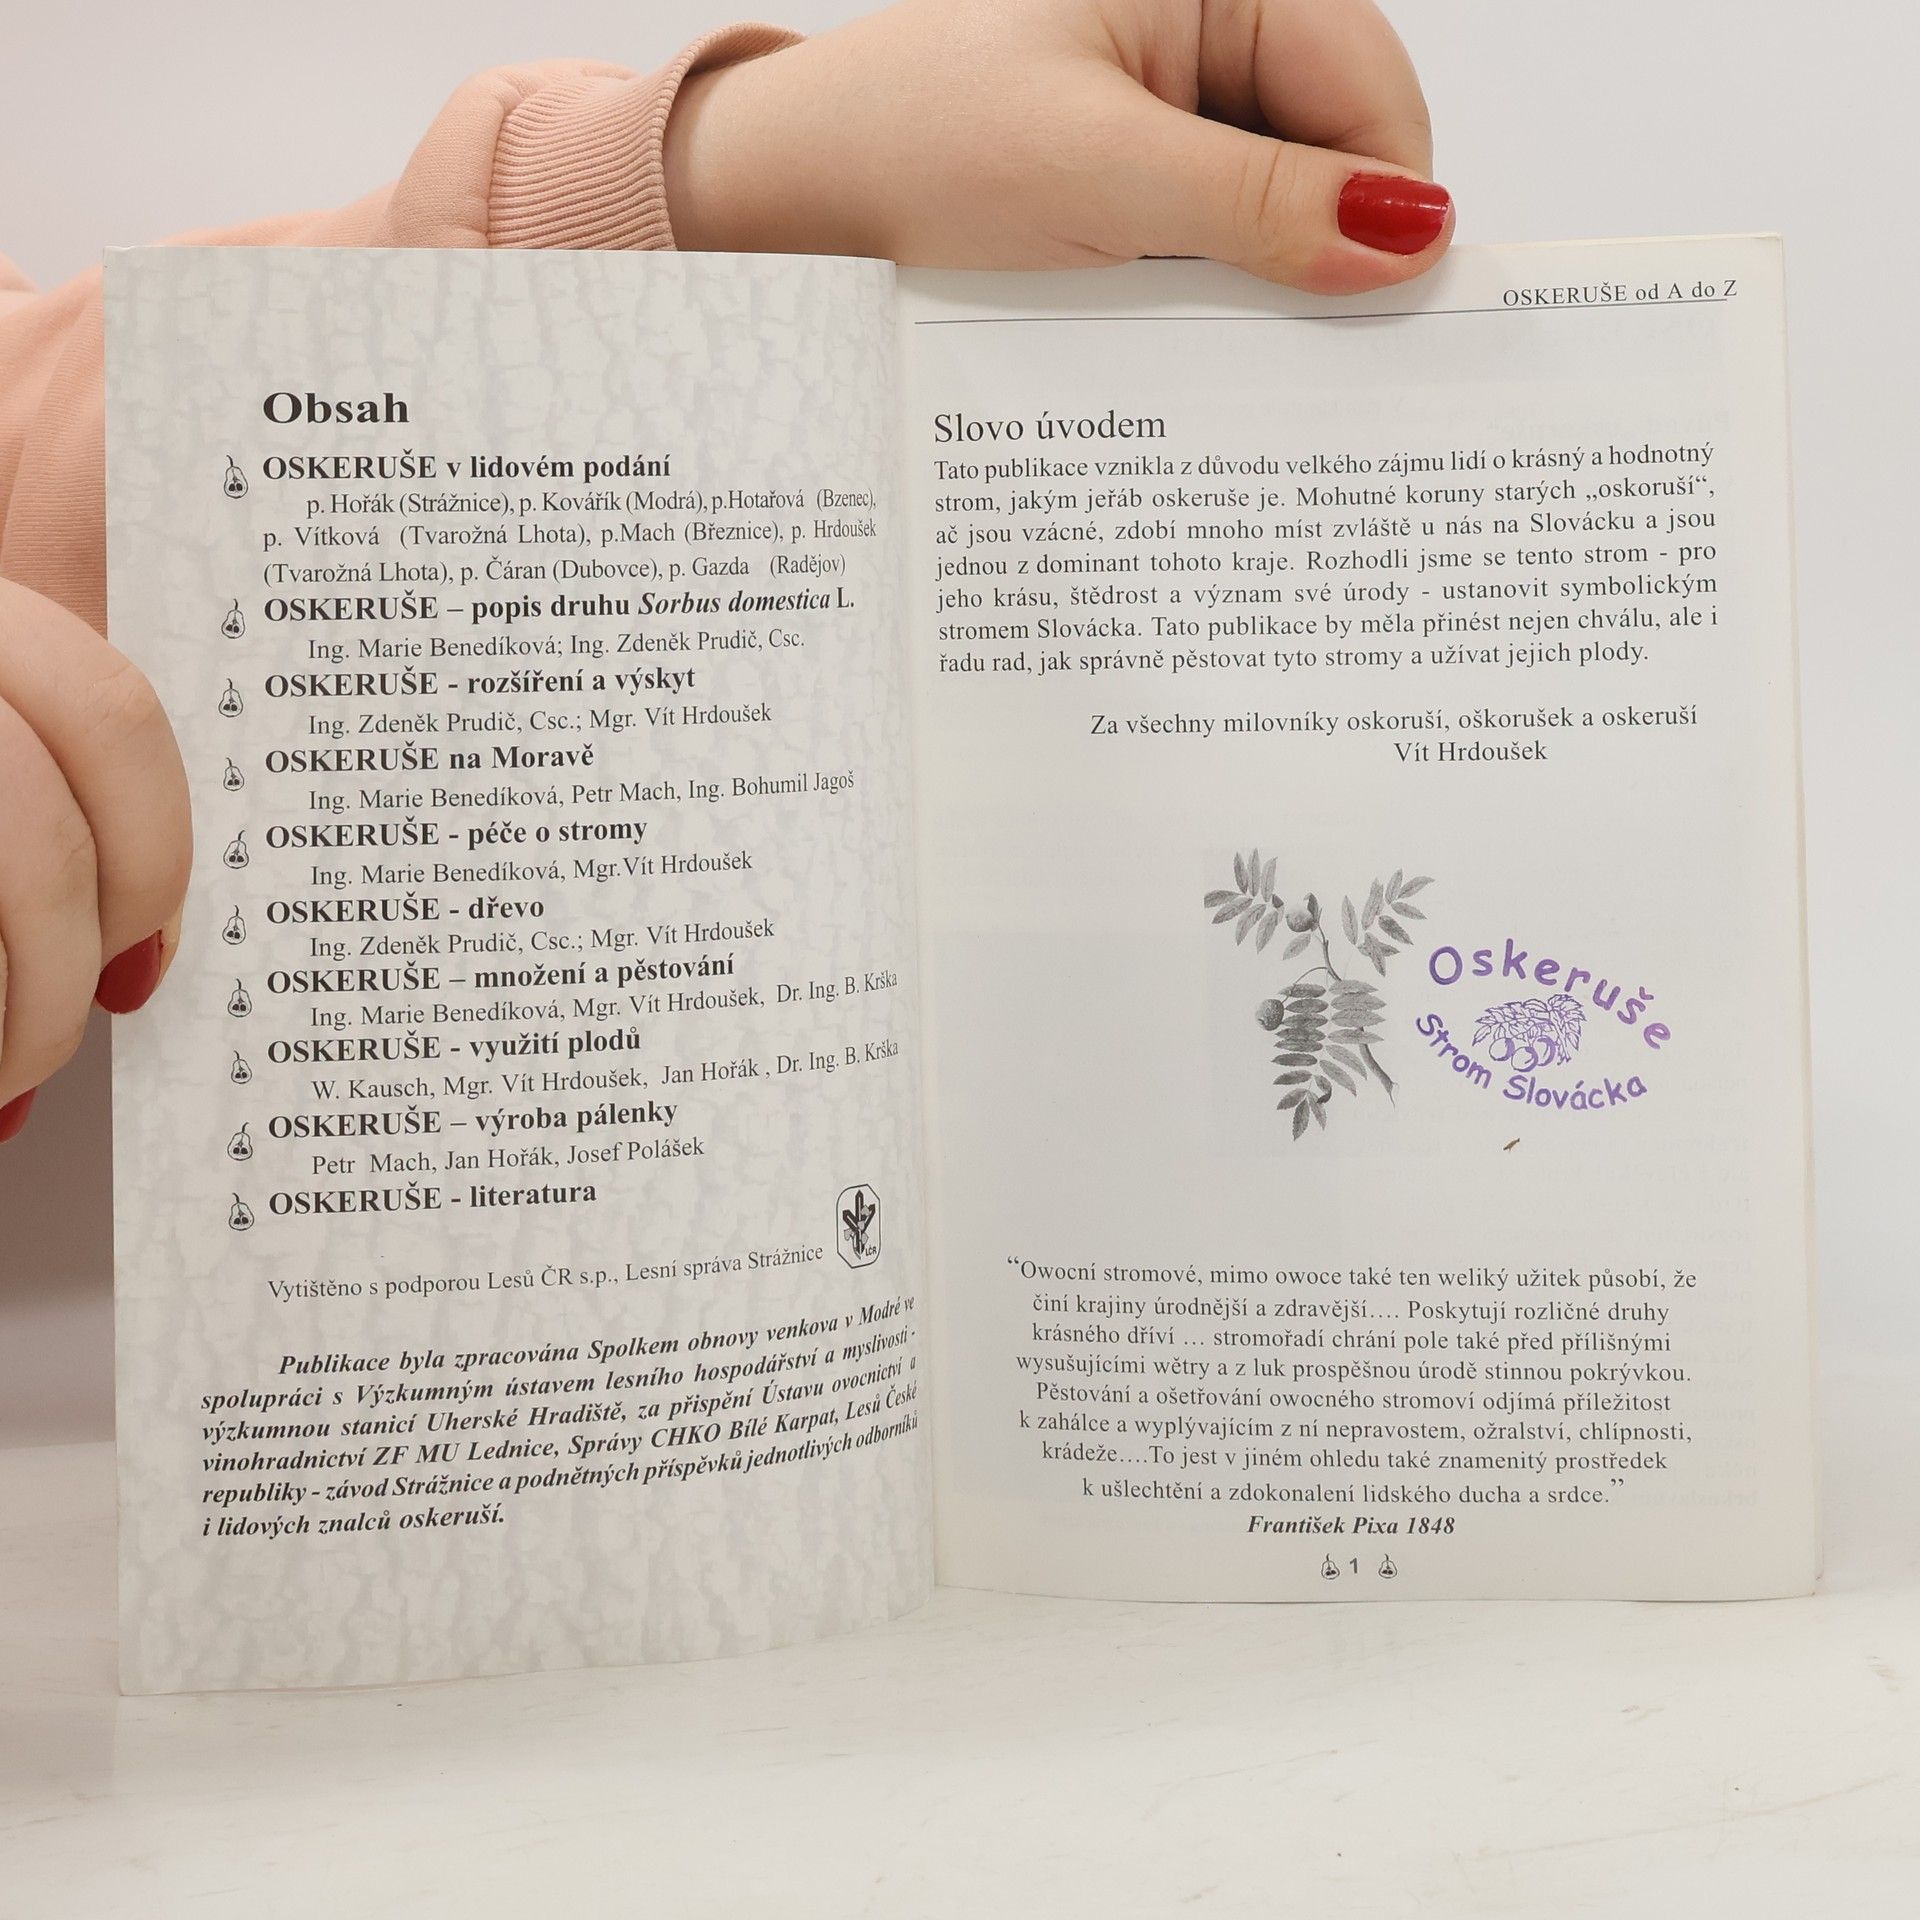 Obsah
OSKERUŠE v lidovém podání
p. Hořák (Strážnice), p. Kovářík (Modrá), p.Hotařová (Bzenec),
p. Vítková (Tvarožná Lhota), p.Mach (Březnice), p. Hrdoušek
(Tvarožná Lhota), p. Čáran (Dubovce), p. Gazda (Radějov)
OSKERUŠE – popis druhu Sorbus domestica L.
Ing. Marie Benedíková; Ing. Zdeněk Prudič, Csc.
OSKERUŠE - rozšíření a výskyt
Ing. Zdeněk Prudič, Csc.; Mgr. Vít Hrdoušek
OSKERUŠE na Moravě
Ing. Marie Benedíková, Petr Mach, Ing. Bohumil Jagoš
OSKERUŠE - péče o stromy
Ing. Marie Benedíková, Mgr.Vít Hrdoušek
OSKERUŠE - dřevo
Ing. Zdeněk Prudič, Csc.; Mgr. Vít Hrdoušek
OSKERUŠE – množení a pěstování
Ing. Marie Benedíková, Mgr. Vít Hrdoušek, Dr. Ing. B. Krška
OSKERUŠE - využití plodů
W. Kausch, Mgr. Vít Hrdoušek, Jan Hořák , Dr. Ing. B. Krška
OSKERUŠE – výroba pálenky
Petr Mach, Jan Hořák, Josef Polášek
OSKERUŠE - literatura
LČR
Vytištěno s podporou Lesů ČR s.p., Lesní správa Strážnice
Publikace byla zpracována Spolkem obnovy venkova v Modré ve
spolupráci s Výzkumným ústavem lesního hospodářství a myslivosti -
výzkumnou stanicí Uherské Hradiště, za přispění Ústavu ovocnictví a
vinohradnictví ZF MU Lednice, Správy CHKO Bílé Karpat, Lesů České
republiky - závod Strážnice a podnětných příspěvků jednotlivých odborníků
i lidových znalců oskeruší.
OSKERUŠE od A do Z
Slovo úvodem
Tato publikace vznikla z důvodu velkého zájmu lidí o krásný a hodnotný
strom, jakým jeřáb oskeruše je. Mohutné koruny starých „oskoruší“,
ač jsou vzácné, zdobí mnoho míst zvláště u nás na Slovácku a jsou
jednou z dominant tohoto kraje. Rozhodli jsme se tento strom - pro
jeho krásu, štědrost a význam své úrody - ustanovit symbolickým
stromem Slovácka. Tato publikace by měla přinést nejen chválu, ale i
řadu rad, jak správně pěstovat tyto stromy a užívat jejich plody.
Za všechny milovníky oskoruší, oškorušek a oskeruší
Vít Hrdoušek
Oskeruše
Strom Slovácka
“Owocní stromové, mimo owoce také ten weliký užitek působí, že
činí krajiny úrodnější a zdravější.... Poskytují rozličné druhy
krásného dříví ... stromořadí chrání pole také před přílišnými
wysušujícími wětry a z luk prospěšnou úrodě stinnou pokrývkou.
Pěstování a ošetřování owocného stromoví odjímá příležitost
k zahálce a wyplývajícím z ní nepravostem, ožralství, chlípnosti,
krádeže....To jest v jiném ohledu také znamenitý prostředek
k ušlechtění a zdokonalení lidského ducha a srdce.”
František Pixa 1848
1